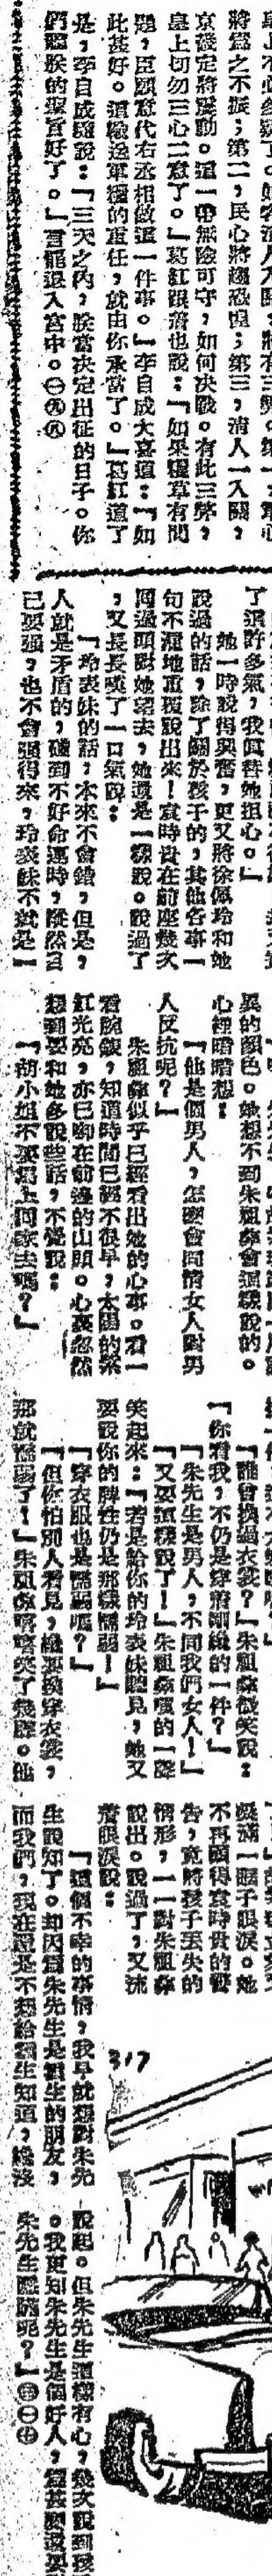 將為之不振；第二，民心將趨恐惶；第三，清人一入關，
京畿定將震動。這一帶無險可守，如何決戰。有此三弊，
皇上切勿三心二意了。」葛紅跟著也說：「如果糧草有問
題，臣願意代右丞相做這一件事。」李自成大喜道：「如
此甚好。這輸送軍糧的重任，就由你承當了。」葛紅道了
是，李自成還說：「三天之內，朕當決定出征的日子。你
們聽朕的聖旨好了。」言罷退入宮中。㊀㊈㊄
了這許多氣，我真替她担心。」
她一時說得興奮，更又將徐佩玲和她
說過的話，除了關於孩子的，其他各事一
句不漏地重複說出來！袁時貴在前座幾次
回過頭對她望去，她還是一樣說。說過了
，又長長嘆了一口氣說：
「玲表妹的話，本來不會錯，但是，
人就是矛盾的，碰到不好命運時，縱然自
己要強，也不會過得來，玲表妹不就是一
異的顏色。她想不到朱祖蔭會這樣說的。
心裡暗暗想：
「他是個男人，怎麼會同情女人對男
人反抗呢？」
朱祖蔭似乎已經看出她的心事。看一
看腕錶，知道時間已經不很早，太陽的紫
紅光亮，亦已啣在前邊的山頭。心裏忽然
想到要和她多說些話，不覺說：
「胡小姐不要馬上回家去嗎？」
「誰曾換過衣裳？」朱祖蔭微笑說：
「你看我，不仍是穿着剛纔的一件？」
「朱先生是男人，不同我們女人！」
「又要這樣說了！」朱祖蔭噗的一聲
笑起來：「若是給你的玲表妹聽見，她又
要說你的脾性仍是那樣懦弱！」
「穿衣服也是懦弱嗎？」
「但你怕別人看見，纔要換穿衣裳，
那就懦弱了！」朱祖蔭嘻嘻笑了幾聲。他
凝滿一眶子眼淚。她
不再顧得袁時貴的警
告，竟將孩子丟失的
情形，一一對朱祖蔭
說出。說過了，又流
着眼淚說：
「這個不幸的事情，我早就想對朱先
生說知了。却因為朱先生是靄生的朋友，
而我們，現在還是不想給靄生知道，纔沒
說起。但朱先生這樣有心，幾次說到孩
。我更知朱先生是個好人，
朱先生隱瞞呢？」㊂㊀㊆
317